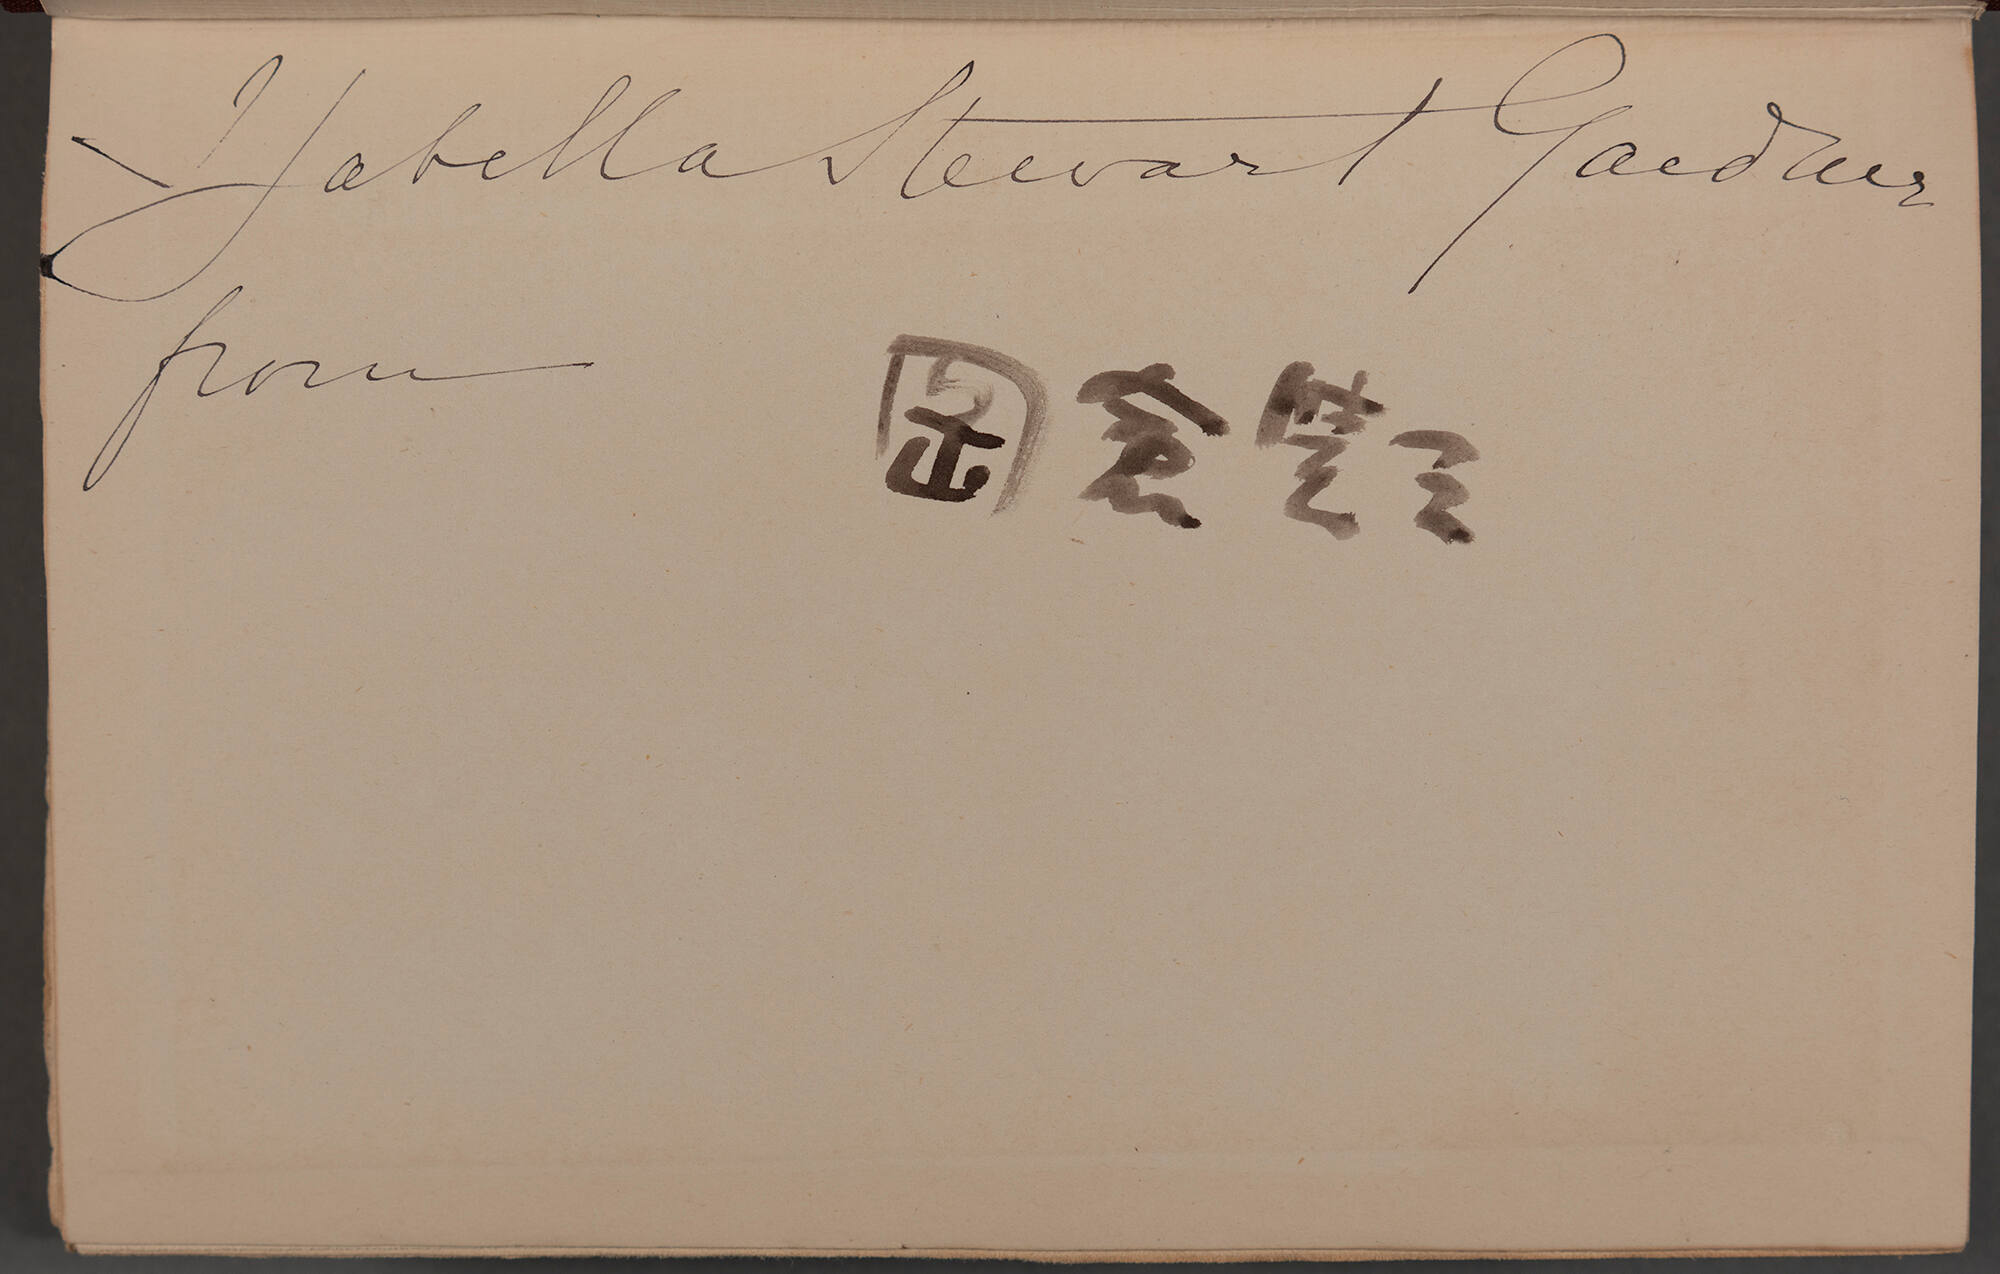 Isabella Stewart Gardner
from 岡倉覺三